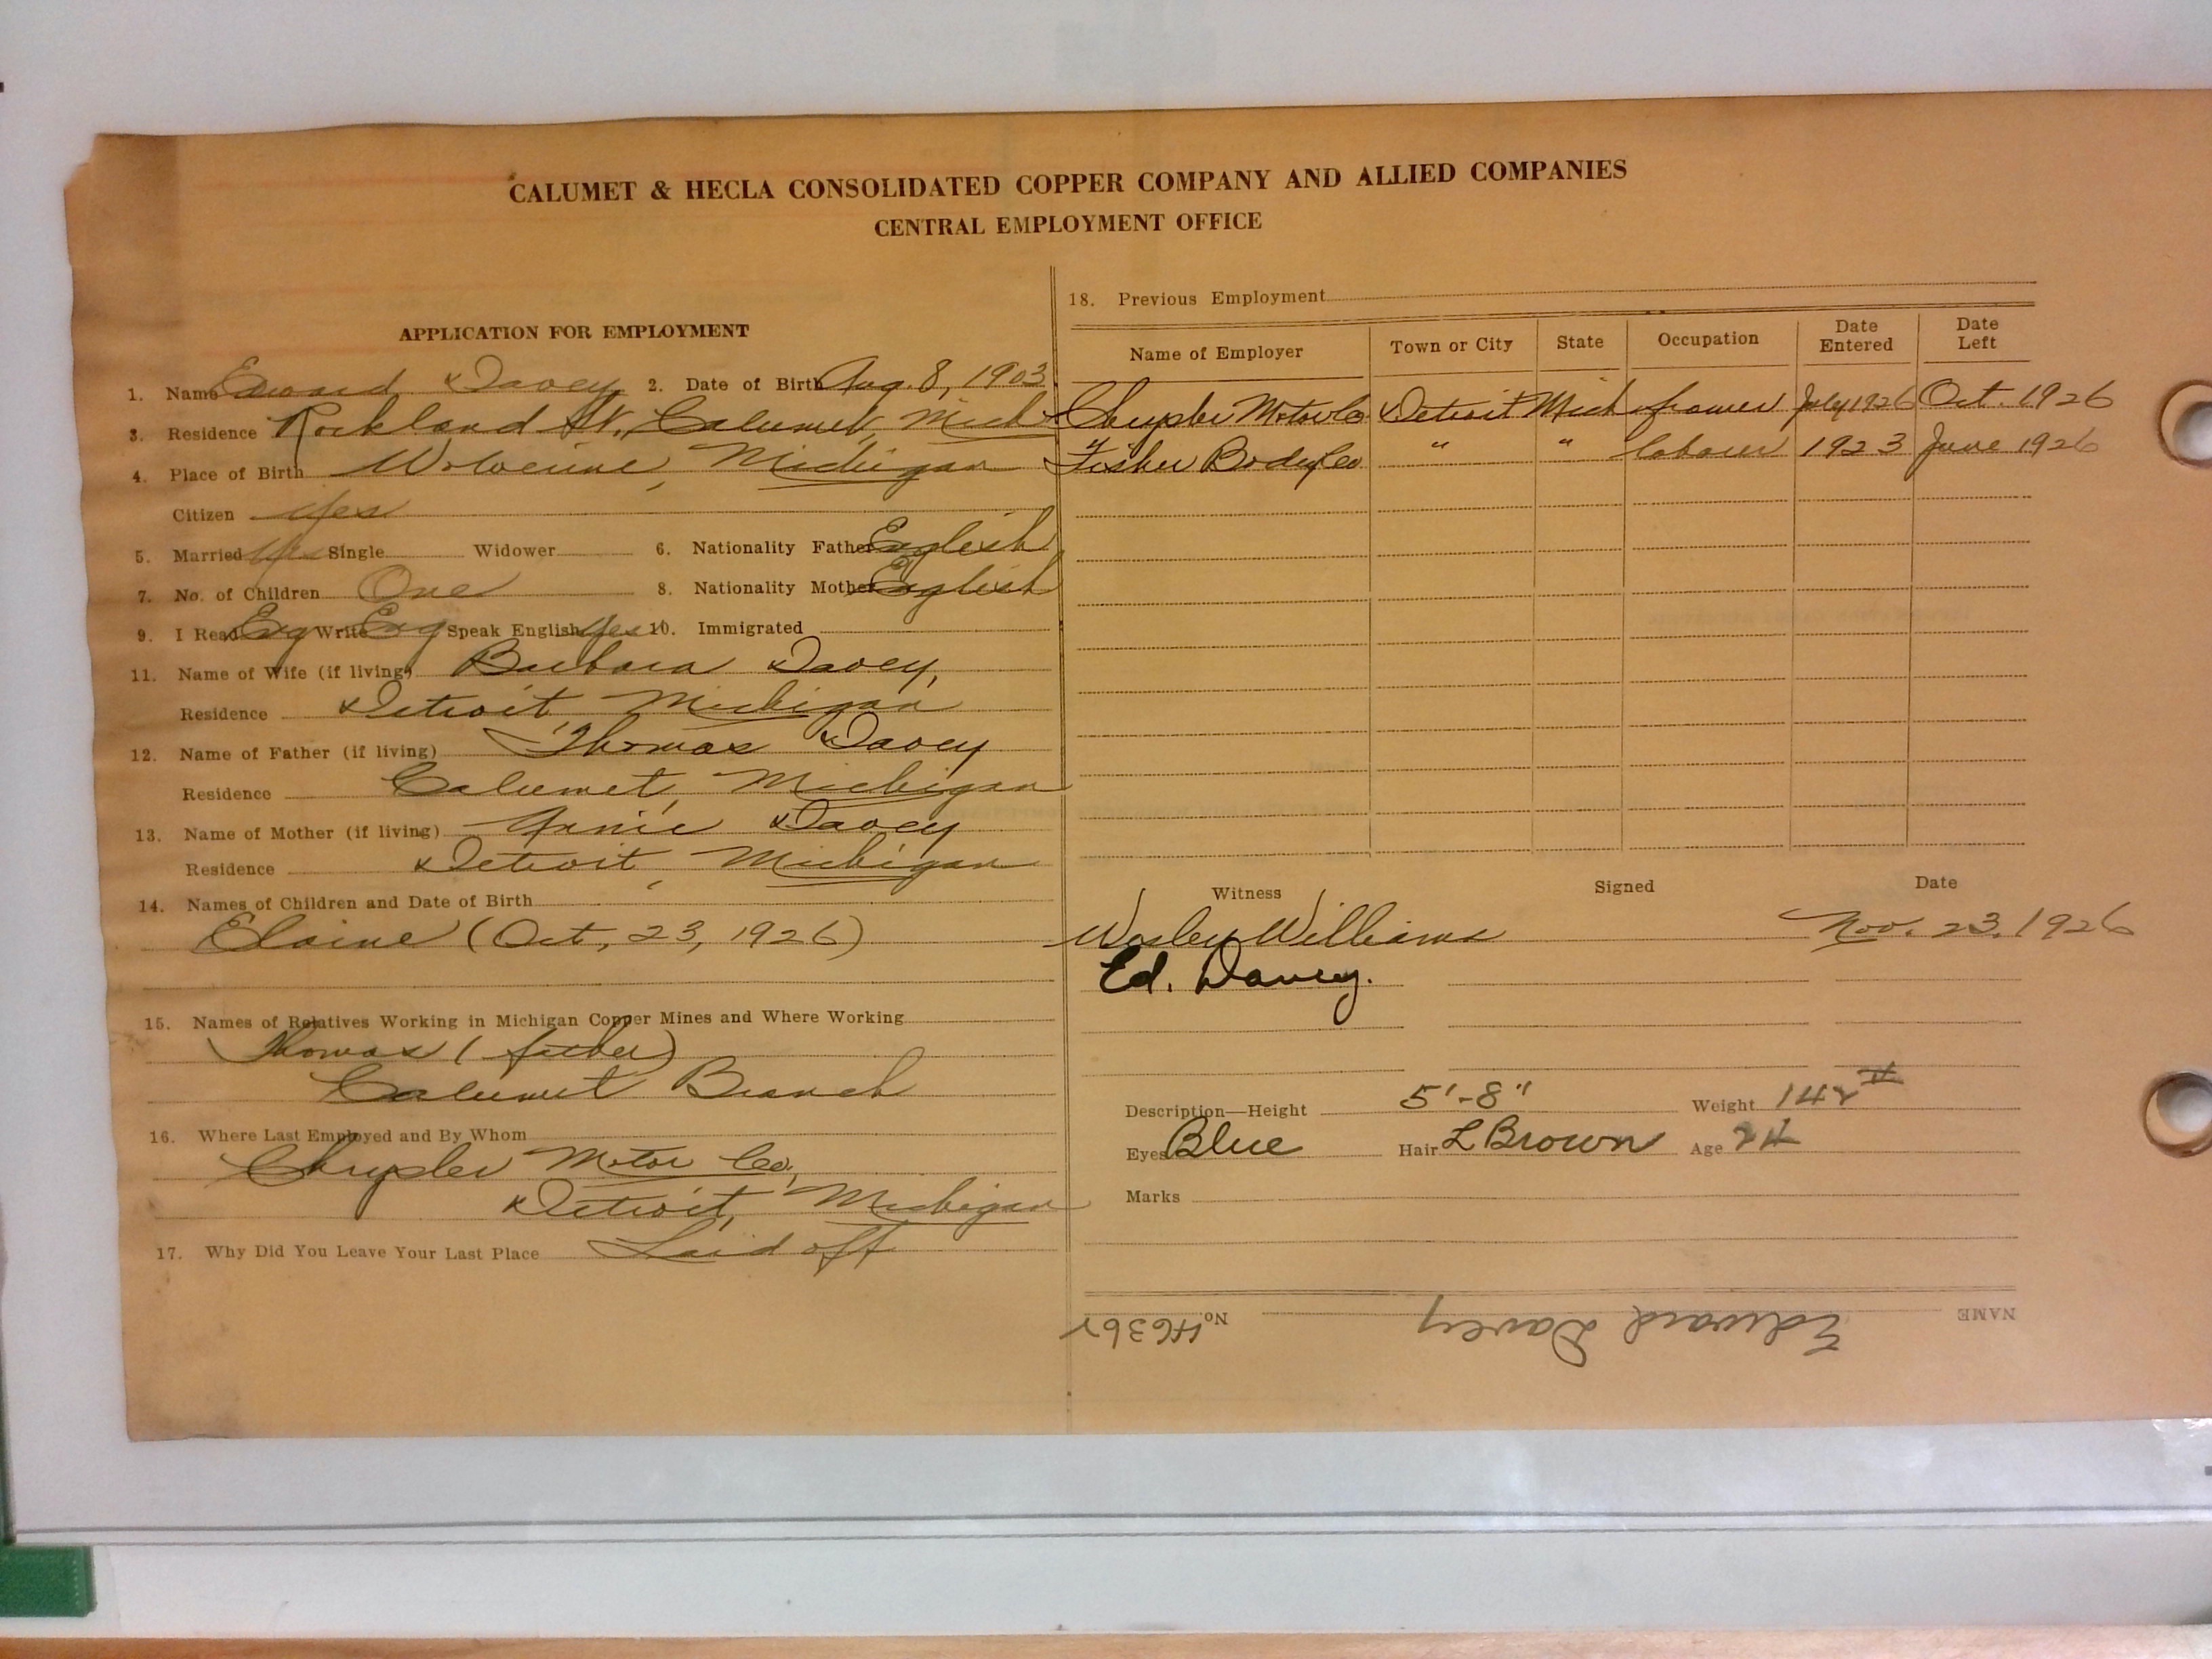 CALUMET & HECLA CONSOLIDATED COPPER COMPANY AND ALLIED COMPANIES
CENTRAL EMPLOYMENT OFFICE
APPLICATION FOR EMPLOYMENT
1. Name Edward Davey 2. Date of Birth Aug. 8, 1903
3. Residence Rockland St., Calumet, Mich
4. Place of Birth Wolverine, Michigan
Citizen Yes
5. Married Yes Single Widower 6. Nationality Father English
7. No. of Children One 8. Nationality Mother English
9. I Read Eng Write Eng Speak English Yes 10. Immigrated
11. Name of Wife (if living) Barbara Davey,
Residence Detroit, Michigan
12. Name of Father (if living) Thomas Davey
Residence Calumet, Michigan
13. Name of Mother (if living) Annie Davey
Residence Detroit, Michigan
14. Names of Children and Date of Birth
Elaine (Oct, 23, 1926)
15. Names of Relatives Working in Michigan Copper Mines and Where Working
Thomas (father)
Calumet Branch
16. Where Last Employed and By Whom
Chrysler Motor Co,
Detroit, Michigan
17. Why Did You Leave Your Last Place Laid off
18. Previous Employment
Name of Employer Town or City State Occupation Date Entered Date Left
Chrysler Motor Co Detroit Mich framer July 1926 Oct. 1926
Fisher Body Co " " laborer 1923 June 1926
Witness Signed Date
Wesley Williams Nov. 23, 1926
Ed. Davey.
Description—Height 5'-8" Weight 142 #
Eyes Blue Hair L Brown Age 24
Marks
NAME Edward Davey No.